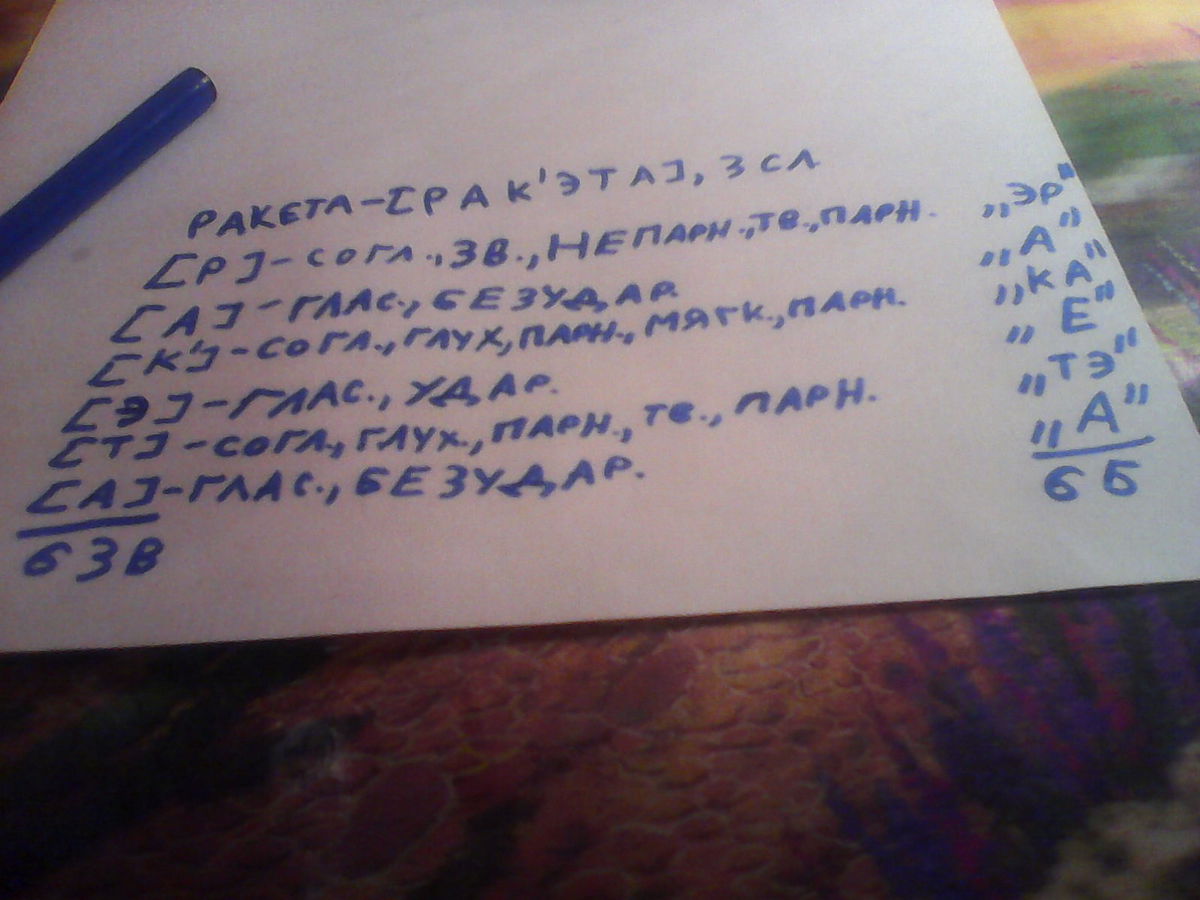 РАКЕТА-[РАК'ЭТА], 3 СЛ
[Р]-СОГЛ.,ЗВ.,НЕПАРН.,ТВ.,ПАРН. „ЭР"
[А]-ГЛАС., БЕЗУДАР. „А"
[К']-СОГЛ.,ГЛУХ,ПАРН.,МЯГК.,ПАРН. „КА"
[Э]-ГЛАС., УДАР. „Е"
[Т]-СОГЛ,ГЛУХ.,ПАРН.,ТВ., ПАРН. „ТЭ"
[А]-ГЛАС.,БЕЗУДАР. „А"
6 ЗВ 6 Б